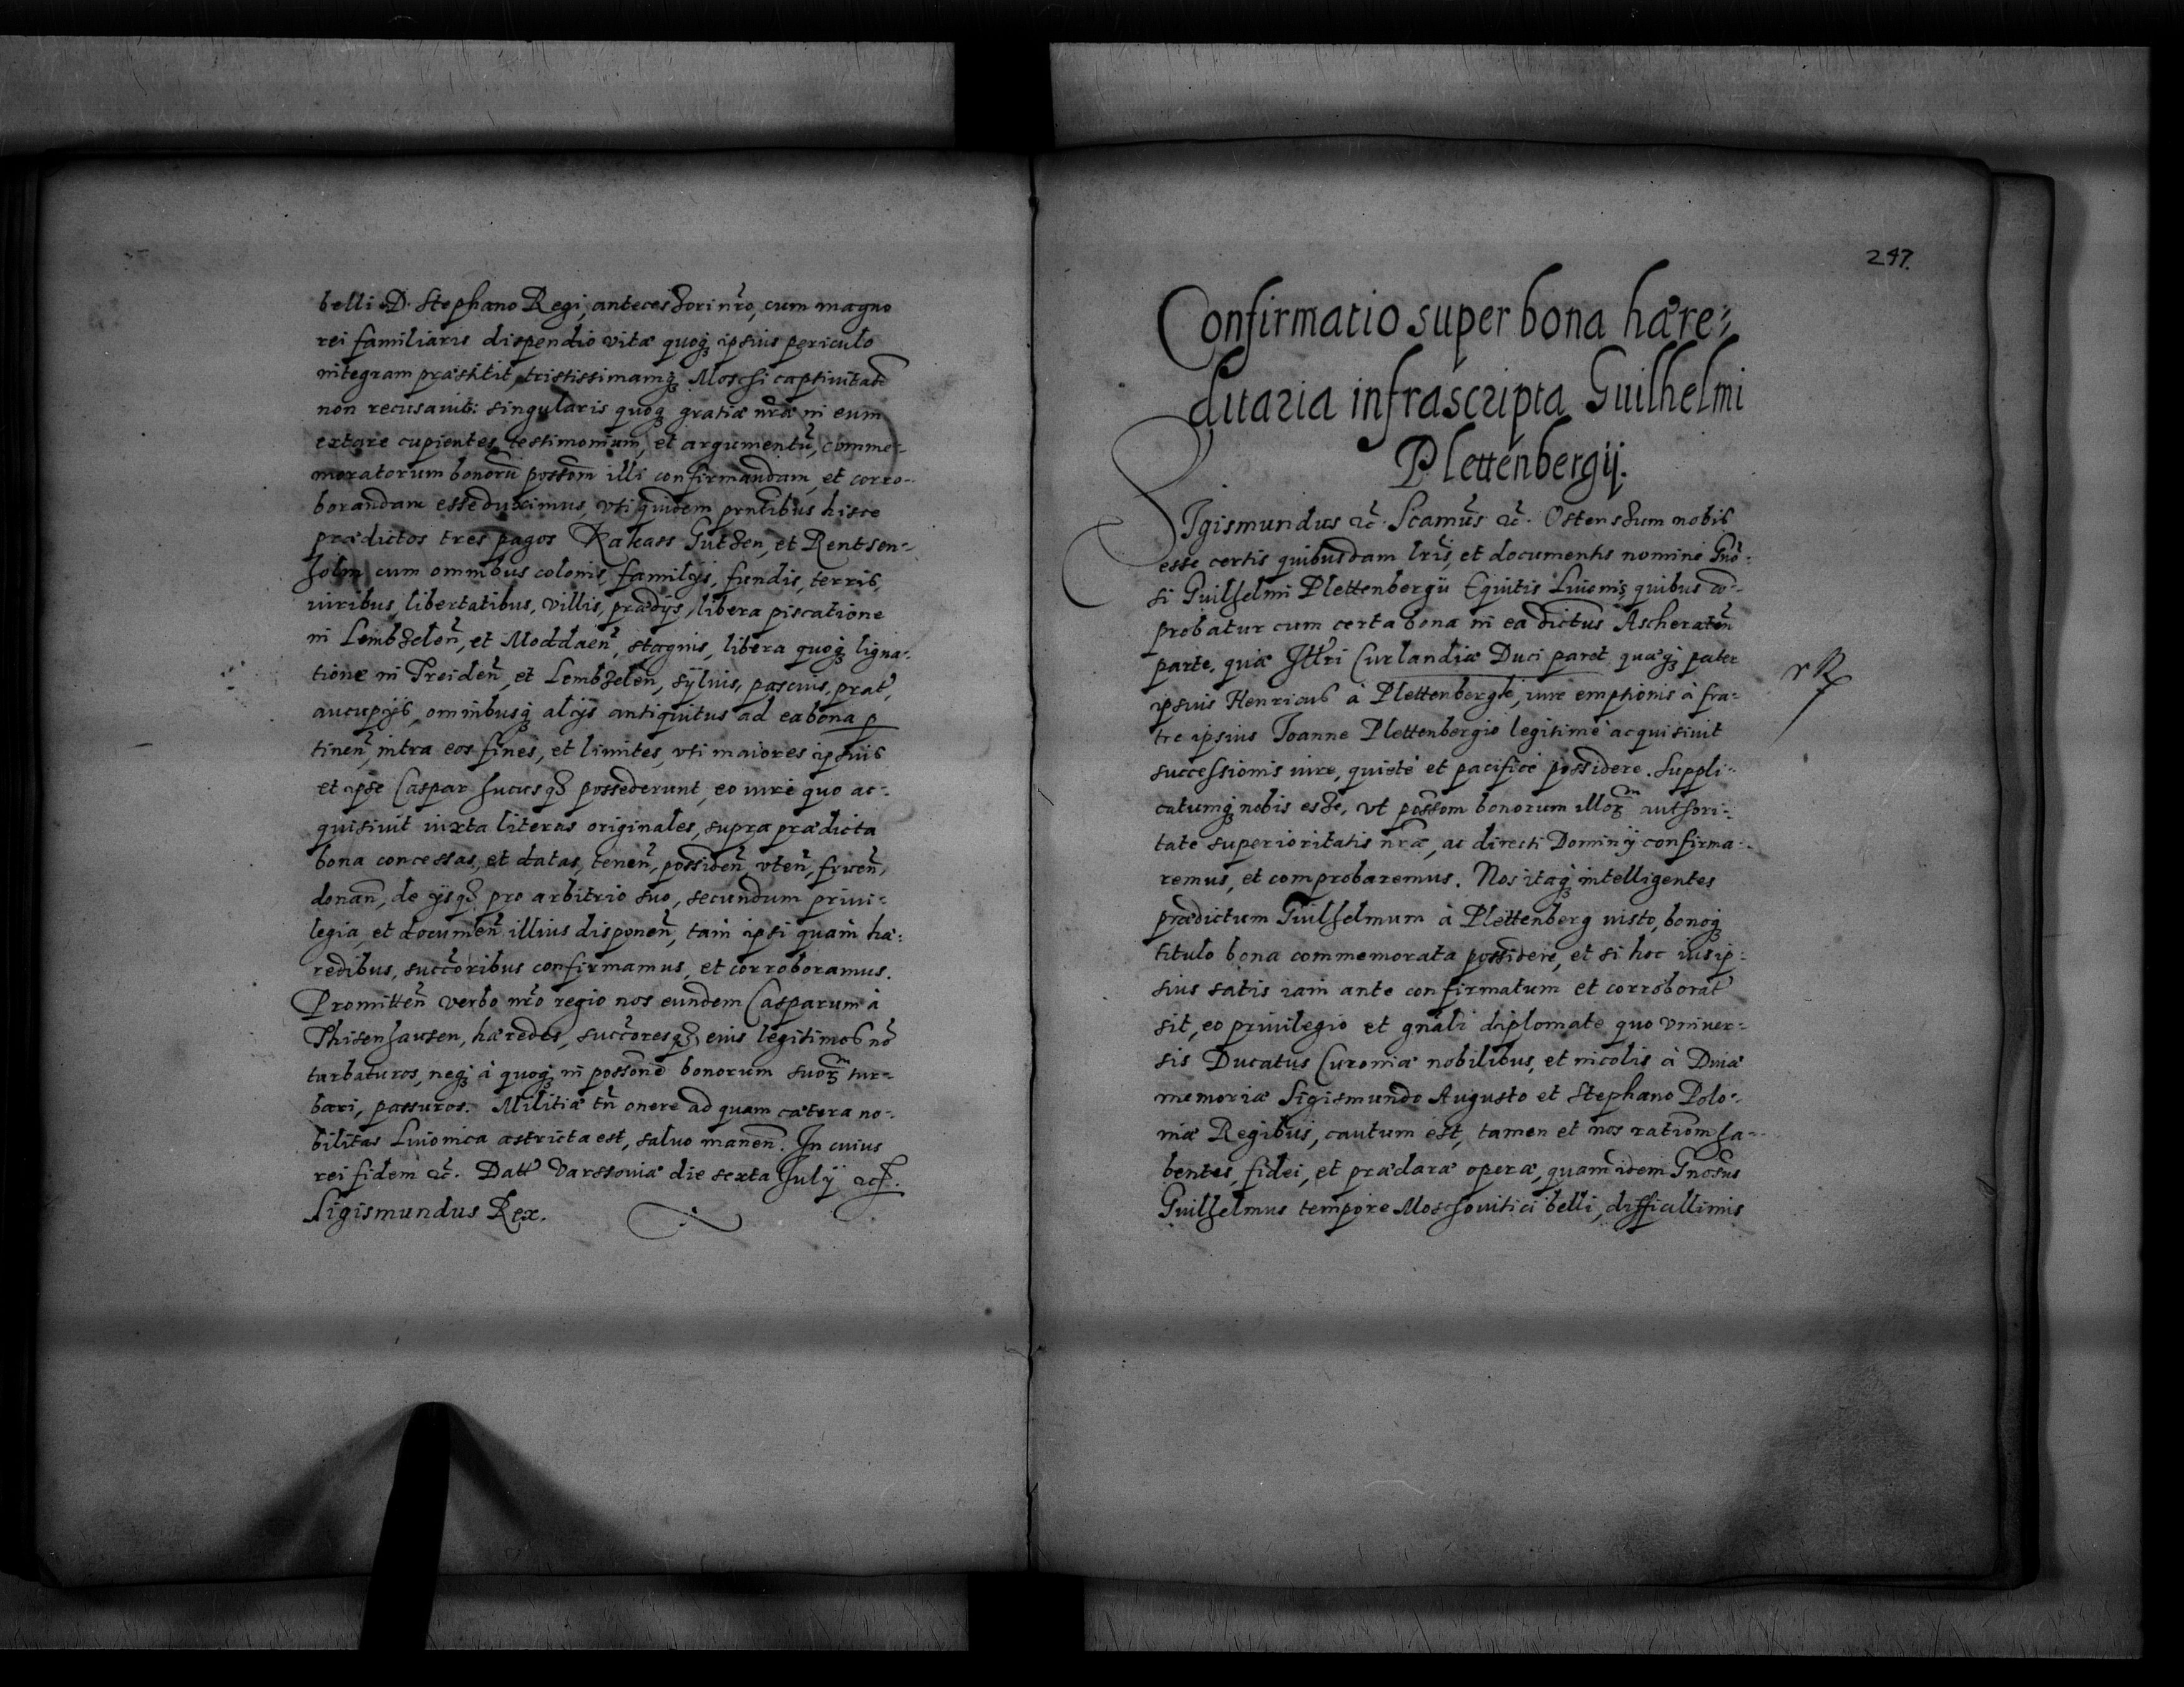 belli D. Stephano Regi, antecessori nr̃o, cum magno
rei familiaris dispendio vitæ quoq; ipsius periculo
integram præstitit, tristissimamq; Moschi captivitatē
non recusavit: singularis quoq; gratiæ nr̃æ in eum
extare cupientes testimonium, et argumentū, comme-
moratorum bonorū possõm illi confirmandam, et corro-
borandam esse duximus, vti quidem prñtibus hisce
prædictos tres pagos Rakass Gutzen, et Rentsen-
holm cum omnibus colonis, familijs, fundis, terris,
viribus, libertatibus, villis, prædijs, libera piscatione
in Lembzeloñ, et Moddaeñ, stagnis, libera quoq; ligna-
tione in Treideñ, et Lembzeleñ, sylvis, pascuis, prat,
aucupijs, omnibusq; alijs antiquitus ad ea bona p
tineñ, intra eos fines, et limites, vti maiores ipsius
et ipse Caspar hucusq; possederunt, eo iure quo ac-
quisivit iuxta literas originales, supra prædicta
bona concessas, et datas, teneñ, possideñ, vteñ, frueñ,
donañ, de ijsq; pro arbitrio suo, secundum privi-
legia, et documeñ illius disponeñ, tam ipsi quàm hæ-
redibus, succõribus confirmamus, et corroboramus.
Promitteñ verbo nr̃o regio nos eundem Casparum à
Thisenhausen, hæredes, succõresq; eius legitimos nõ
turbaturos, neq; à quoq; in possõne bonorum suor; tur-
bari, passuros. Militiæ tñ onere ad quam cætera no-
bilitas Livonica astricta est, salvo maneñ. In cuius
rei fidem &c. Datt Varssoviæ die sexta July &c.
Sigismundus Rex.
247.
Confirmatio super bona hære-
ditaria infrascripta Guilhelmi
Plettenbergij.
Sigismundus &c. Scamũs &c. Ostensum nobis
esse certis quibusdam lr̃is, et documentis nomine Gnõ-
si Guilhelmi Plettenbergii Equitis Livonis, quibus cõ-
probatur eum certa bona in ea dictus Ascherateñ
parte, quæ Illri Curlandiæ Duci paret quæq; pater
ipsius Henricus à Plettenbergk, iure emptionis à fra-
tre ipsius Joanne Plettenbergio legitime acquisiuit
successionis iure, quietè et pacificè possidere. Suppli-
catumq; nobis esse, vt possõm bonorum illor; authori-
tate superioritatis nr̃æ, ac directi Dominij confirma-
remus, et comprobaremus. Nos itaq; intelligentes
prædictum Guilhelmum à Plettenberg iusto, bonoq;
titulo bona commemorata possidere, et si hoc ius ip-
sius satis iam ante confirmatum et corroborat
sit, eo privilegio et gnãli diplomate quo vniver-
sis Ducatus Curoniæ nobilibus, et incolis à Divæ
memoriæ Sigismundo Augusto et Stephano Polo-
niæ Regibus, cautum est, tamen et nos rationm ha-
bentes, fidei, et præclaræ operæ, quam idem Gnosus
Guilhelmus tempore Moschovitici belli, difficillimis